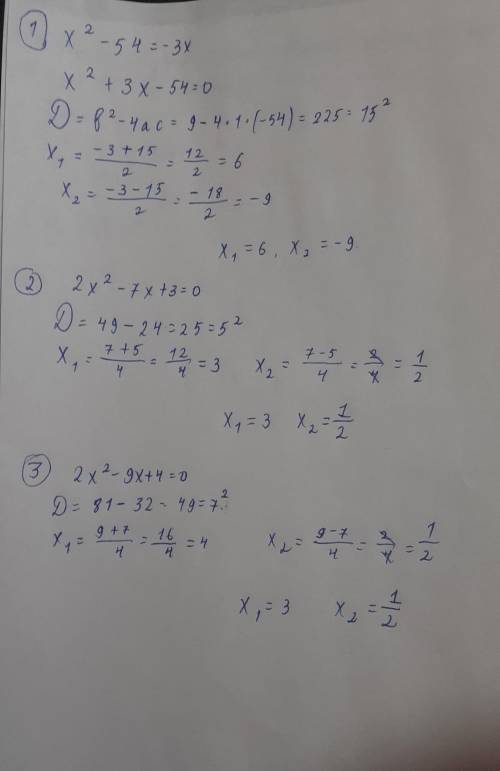 1 x² - 54 = -3x
x² + 3x - 54 = 0
D = b² - 4ac = 9 - 4·1·(-54) = 225 = 15²
x₁ = (-3+15)/2 = 12/2 = 6
x₂ = (-3-15)/2 = -18/2 = -9
x₁ = 6, x₂ = -9.
2 2x² - 7x + 3 = 0
D = 49 - 24 = 25 = 5²
x₁ = (7+5)/4 = 12/4 = 3 x₂ = (7-5)/4 = 2/4 = 1/2
x₁ = 3 x₂ = 1/2
3 2x² - 9x + 4 = 0
D = 81 - 32 - 49 = 7²
x₁ = (9+7)/4 = 16/4 = 4 x₂ = (9-7)/4 = 2/4 = 1/2
x₁ = 3 x₂ = 1/2